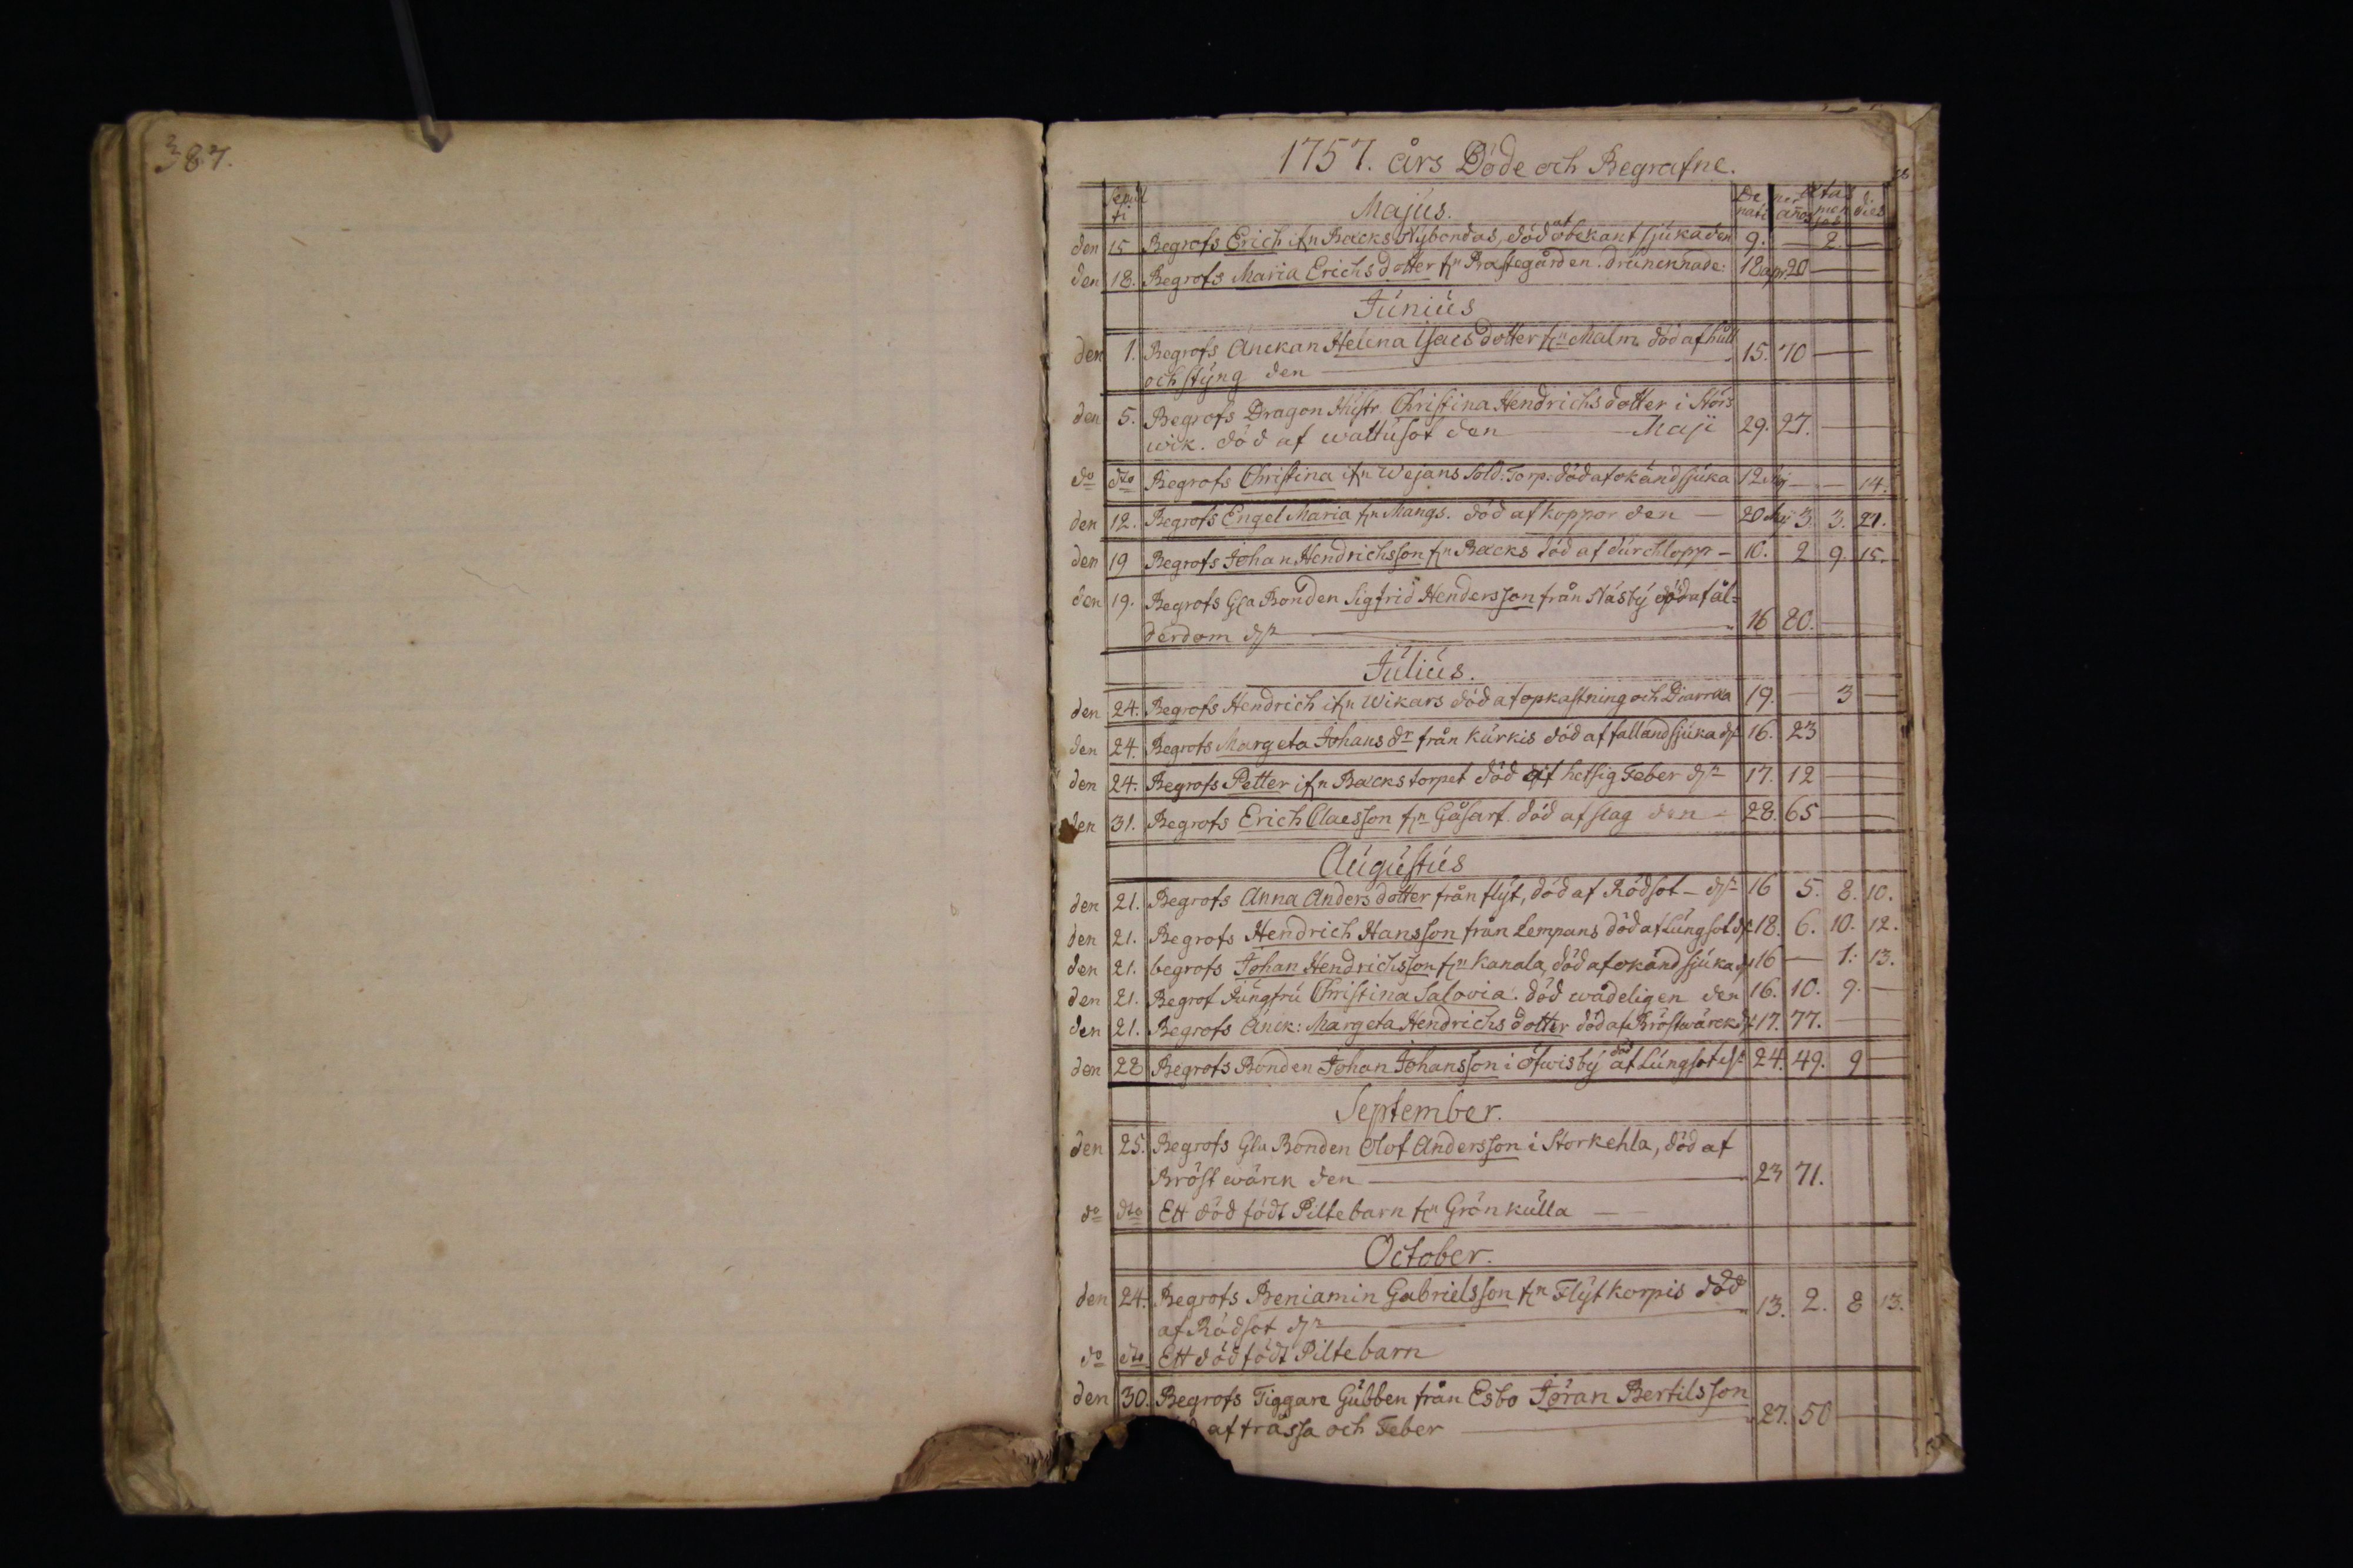 387.
1757. års Döde och Begrafne.
Sepul ti Majus. De nati per annos ætas men ses dies
den 15 Begrofs Erich ifrn Backs Nybondas, död af obekant sjuka den 9. — 2 —
den 18. Begrofs Maria Erichsdotter frn Prästegården. drunknade: 18 apr. 20 —
Junius
den 1. Begrofs Änckan Helena Isacsdotter frn Malm död af håll
och styng den — 15. 70 —
den 5. Begrofs Dragon Hustr Christina Hendrichsdotter i Störs
wik. död af wattusot den — Maji 29. 27. —
do dto Begrofs Christina ifrn Wejans Sold: Torp: död af okänd sjuka 12 Maj — — 14.
den 12. Begrofs Engel Maria frn Mangs. död af koppor den — 20 Maj 3. 3. 21.
den 19 Begrofs Johan Hendrichsson frn Backs död af durchlopp — 10. 2 9. 15.
den 19. Begrofs Gla Bonden Sigfrid Hendersson från Näsby död af ål=
derdom dn — 16 80. —
Julius.
den 24. Begrofs Hendrich ifrn Wikars död af opkastning och Diarræa 19. — 3 —
den 24. Begrofs Margeta Johans dr från Kurkis död af falland sjuka dn 16. 23
den 24. Begrofs Petter ifrn Backstorpet död af hetsig Feber dn 17. 12 —
den 31. Begrofs Erich Claesson frn Gåsarf. död af slag den — 28. 65 —
Augustus
den 21. Begrofs Anna Andersdotter från flyt, död af Rödsot — dn 16 5. 8. 10.
den 21. Begrofs Hendrich Hansson från Lempans död af Lungsot dn 18. 6. 10. 12.
den 21. begrofs Johan Hendrichsson frn Kanala, död af okänd sjuka dn 16 — 1. 13.
den 21. Begrof Jungfru Christina Salovia. död wådeligen den 16. 10. 9. —
den 21. Begrofs Änck: Margeta Hendrichs dotter död af Bröstwärck dn 17. 77. —
den 28 Begrofs Bonden Johan Johansson i Öfwisby död af Lungsot dn 24. 49. 9 —
September.
den 25. Begrofs Gla Bonden Olof Andersson i Storkehla, död af
Bröst wärck den — 23 71.
do dto Ett död födt Piltebarn frn Grönkulla —
October.
den 24. Begrofs Beniamin Gabrielsson frn Flytkorpis död
af Rödsot dn — 13. 2. 8 13.
do dto Ett död födt Piltebarn
den 30. Begrofs Tiggare Gubben från Esbo Jöran Bertilsson
af trässa och Feber — 27. 50 —